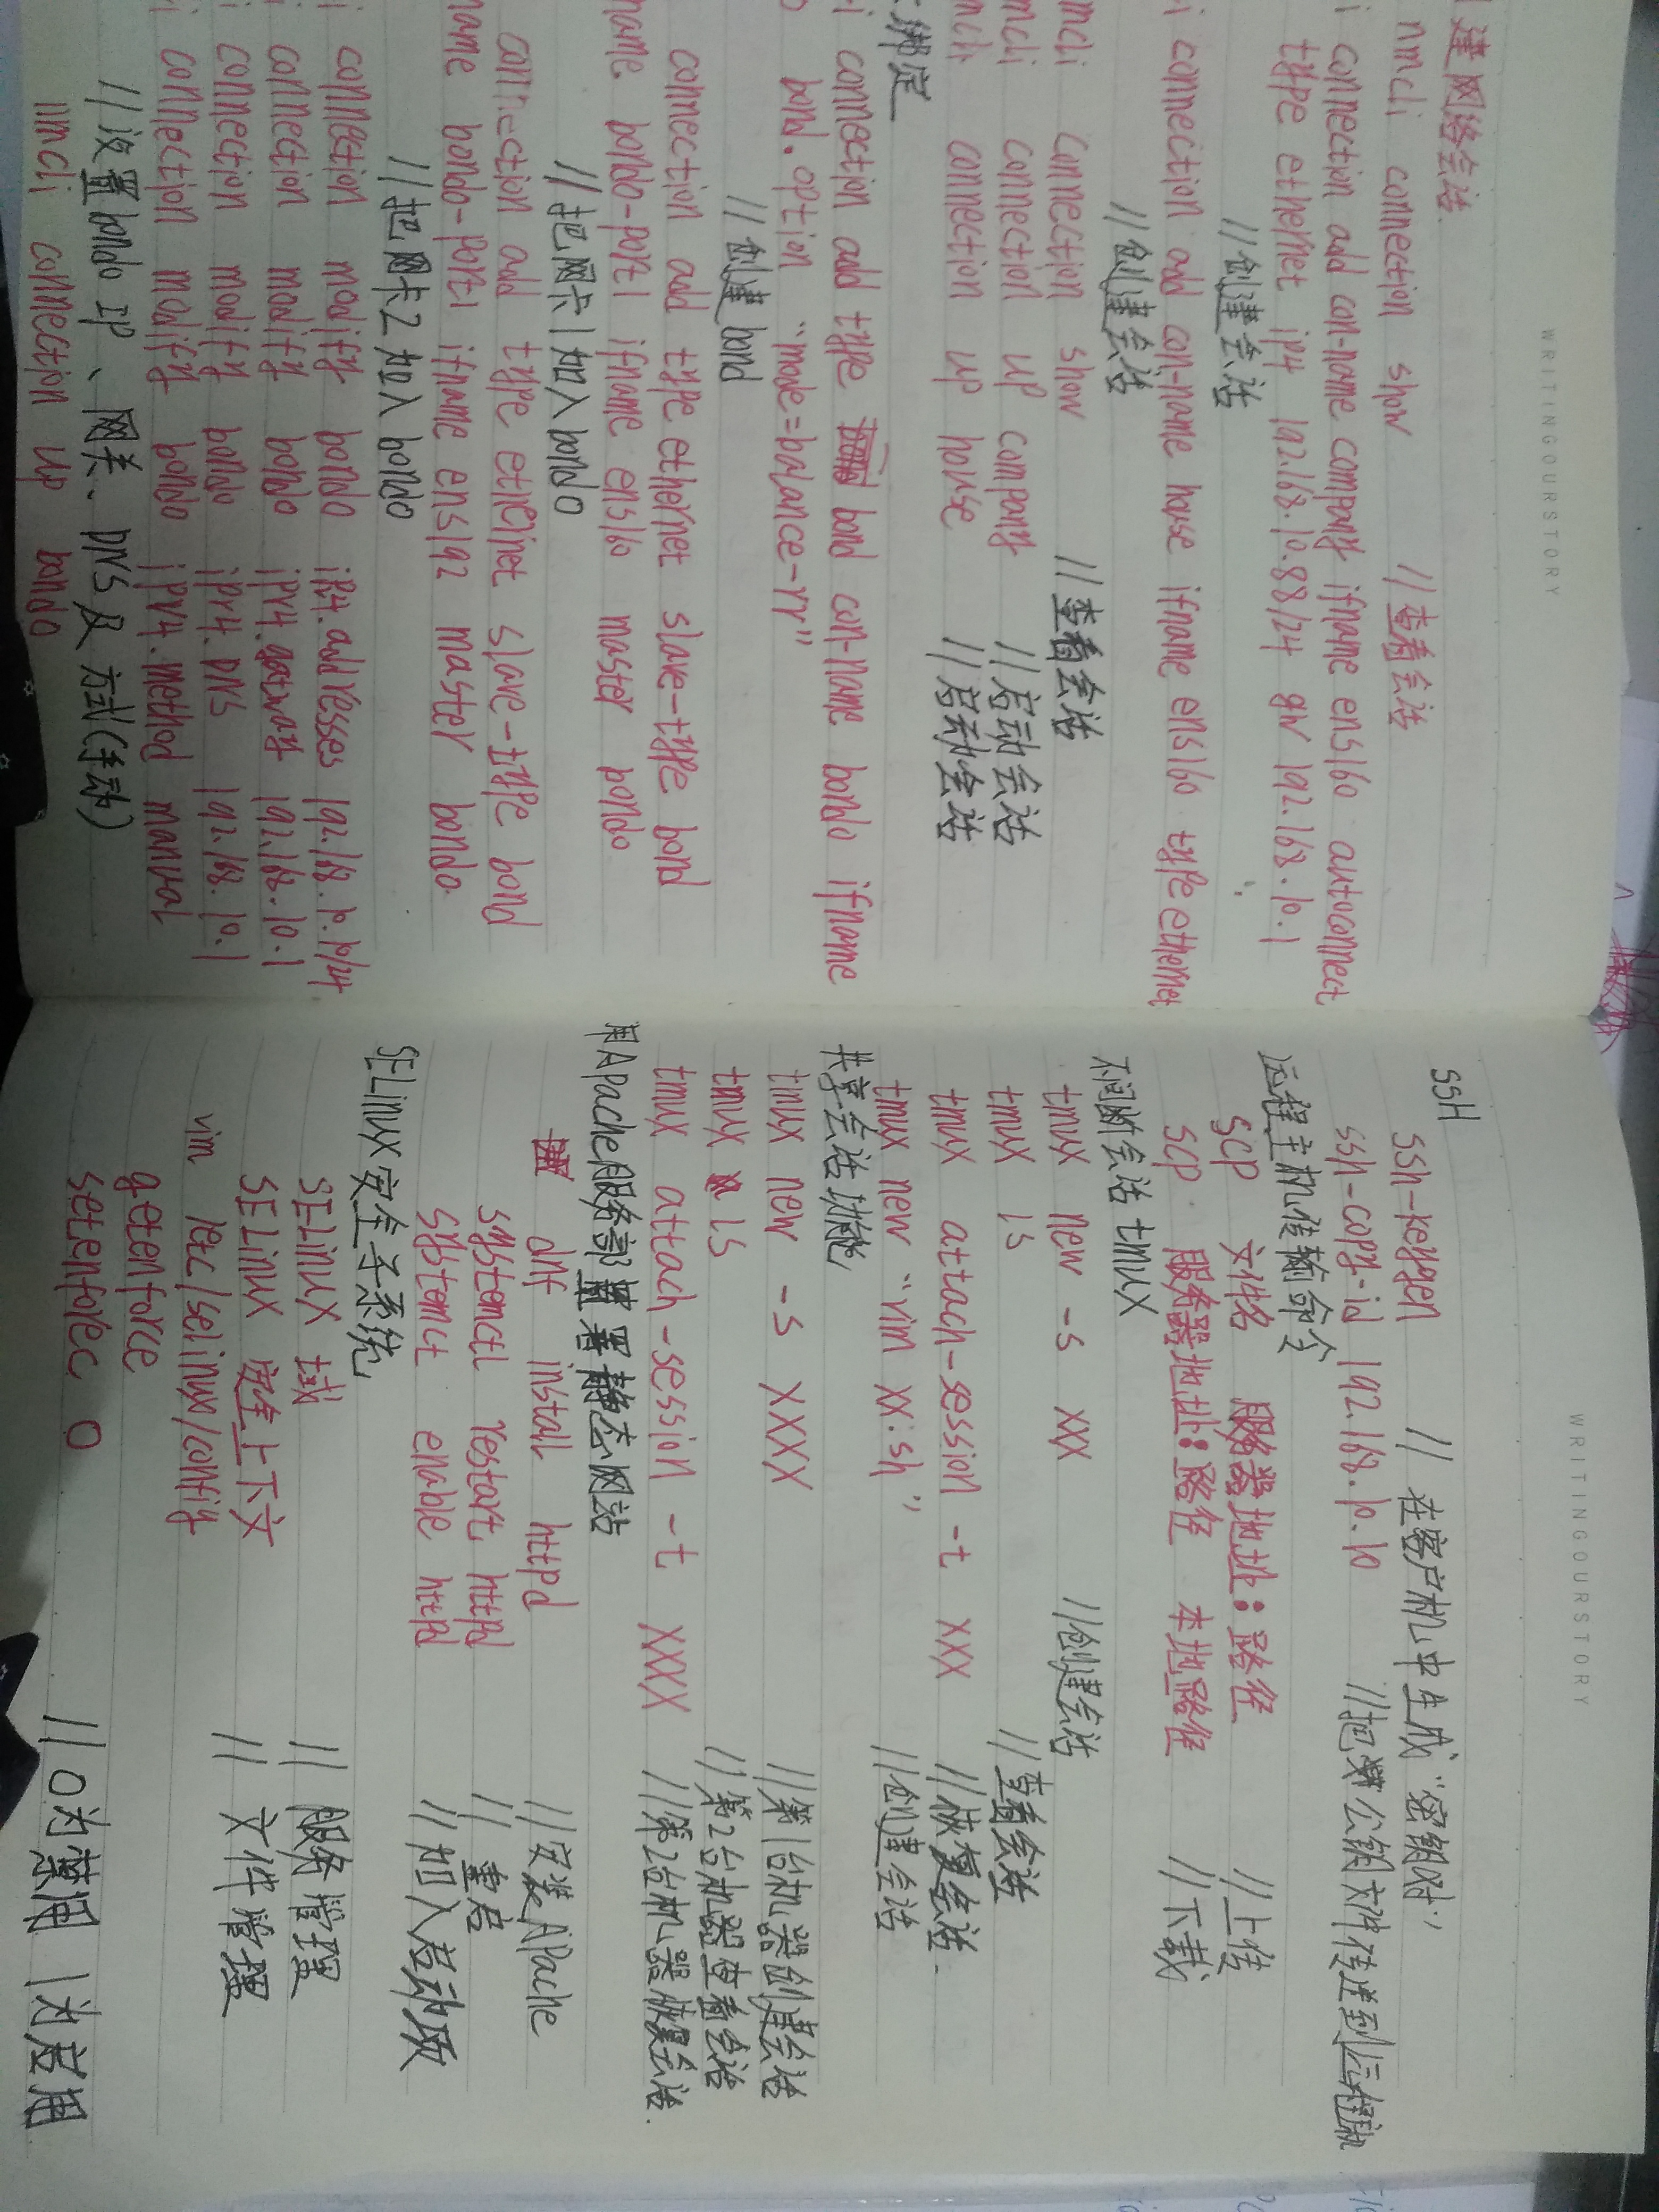 WRITINGOURSTORY
建网络会话
nmcli connection show //查看会话
i connection add con-name company ifname ens160 autoconnect
type ethernet ip4 192.168.10.88/24 gw 192.168.10.1
//创建会话
i connection add con-name house ifname ens160 type ethernet
//创建会话
mcli connection show //查看会话
mcli connection up company //启动会话
mcli connection up house //启动会话
绑定
i connection add type bond con-name bond0 ifname
bond.option "mode=balance-rr"
//创建bond
connection add type ethernet slave-type bond
name bond0-port1 ifname ens160 master bond0
//把网卡1加入bond0
connection add type ethernet slave-type bond
name bond0-port1 ifname ens192 master bond0.
//把网卡2加入bond0
i connection modify bond0 ipv4.addresses 192.168.10.10/24
i connection modify bond0 ipv4.gatway 192.168.10.1
i connection modify bond0 ipv4.DNS 192.168.10.1
i connection modify bond0 ipv4.method manual
//设置bond0 IP、网关、DNS及方式(手动)
nmcli connection up bond0
WRITINGOURSTORY
SSH
ssh-keygen //在客户机中生成"密钥对"
ssh-copy-id 192.168.10.10 //把公钥文件传送到远程
远程主机传输命令
scp 文件名 服务器地址:路径 //上传
scp 服务器地址:路径 本地路径 //下载
不间断会话 tmux
tmux new -s xxx //创建会话
tmux ls //查看会话
tmux attach-session -t xxx //恢复会话.
tmux new "vim xx:sh" //创建会话
共享会话功能
tmux new -s XXXX //第1台机器创建会话
tmux ls //第2台机器查看会话
tmux attach-session -t XXXX //第2台机器恢复会话.
用Apache服务部署静态网站
dnf install httpd //安装Apache
systemctl restart httpd //重启
systemct enable httpd //加入启动项
SELinux安全子系统
SELinux 域 //服务管理
SELinux 安全上下文 //文件管理
vim /etc/selinux/config
getenforce
setenforec 0 //0为禁用 1为启用